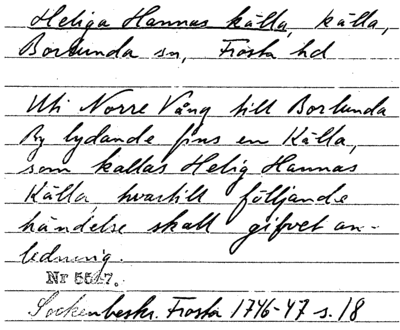 Heliga Hannas källa, källa,
Borlunda sn, Frosta hd
Uti Norre Vång till Borlunda
By lydande fins en Källa,
som kallas Helig Hannas
Källa, hvartill följjande
händelse skall gifvet an-
ledning.
Nr 5517.
Sockenbeskr. Frosta 1746-47 s. 18